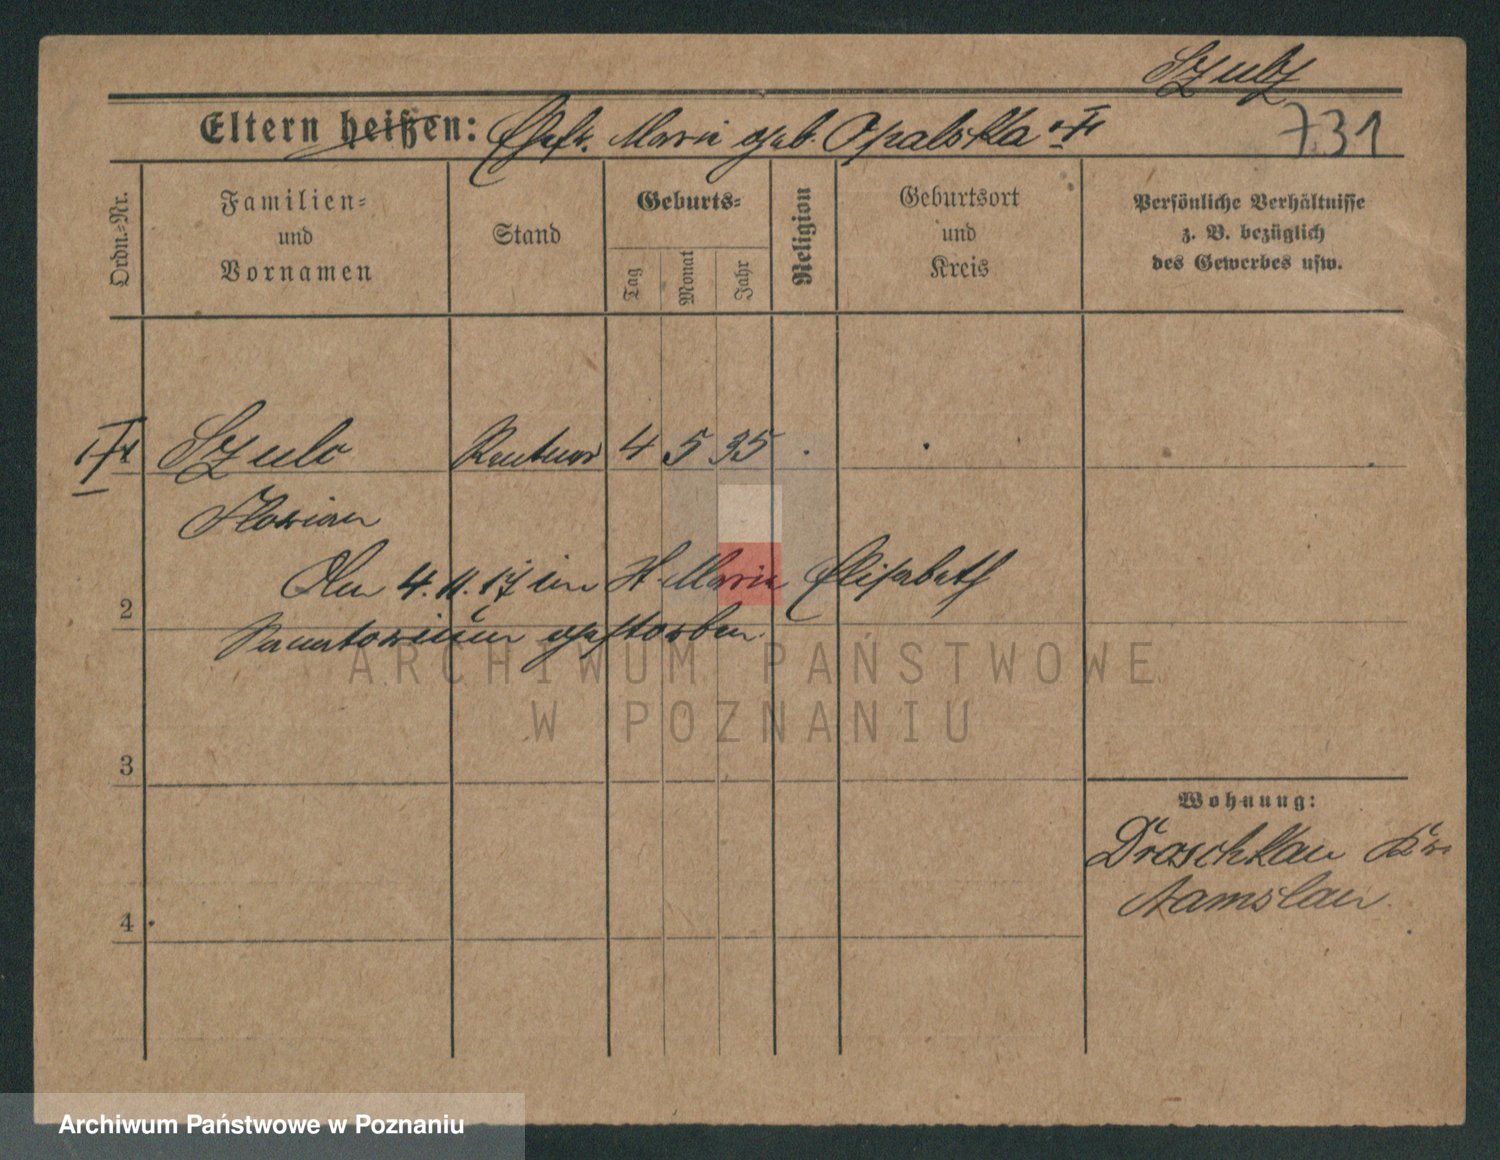 Szulz
Eltern heißen: Ehefr. Marie geb. Opalska
731
Ordn.-Nr.
Familien- und Vornamen
Stand
Geburts-
Tag
Monat
Jahr
Religion
Geburtsort und Kreis
Persönliche Verhältnisse
z. B. bezüglich
des Gewerbes usw.
Szulc Rentner 4 5 35
Florian
Am 4. 11. 17 im St. Marie Elisabeth
2
Sanatorium gestorben.
ARCHIWUM PAŃSTWOWE
W POZNANIU
3
Wohnung:
Droschkau Kr.
Namslau
4
Archiwum Państwowe w Poznaniu